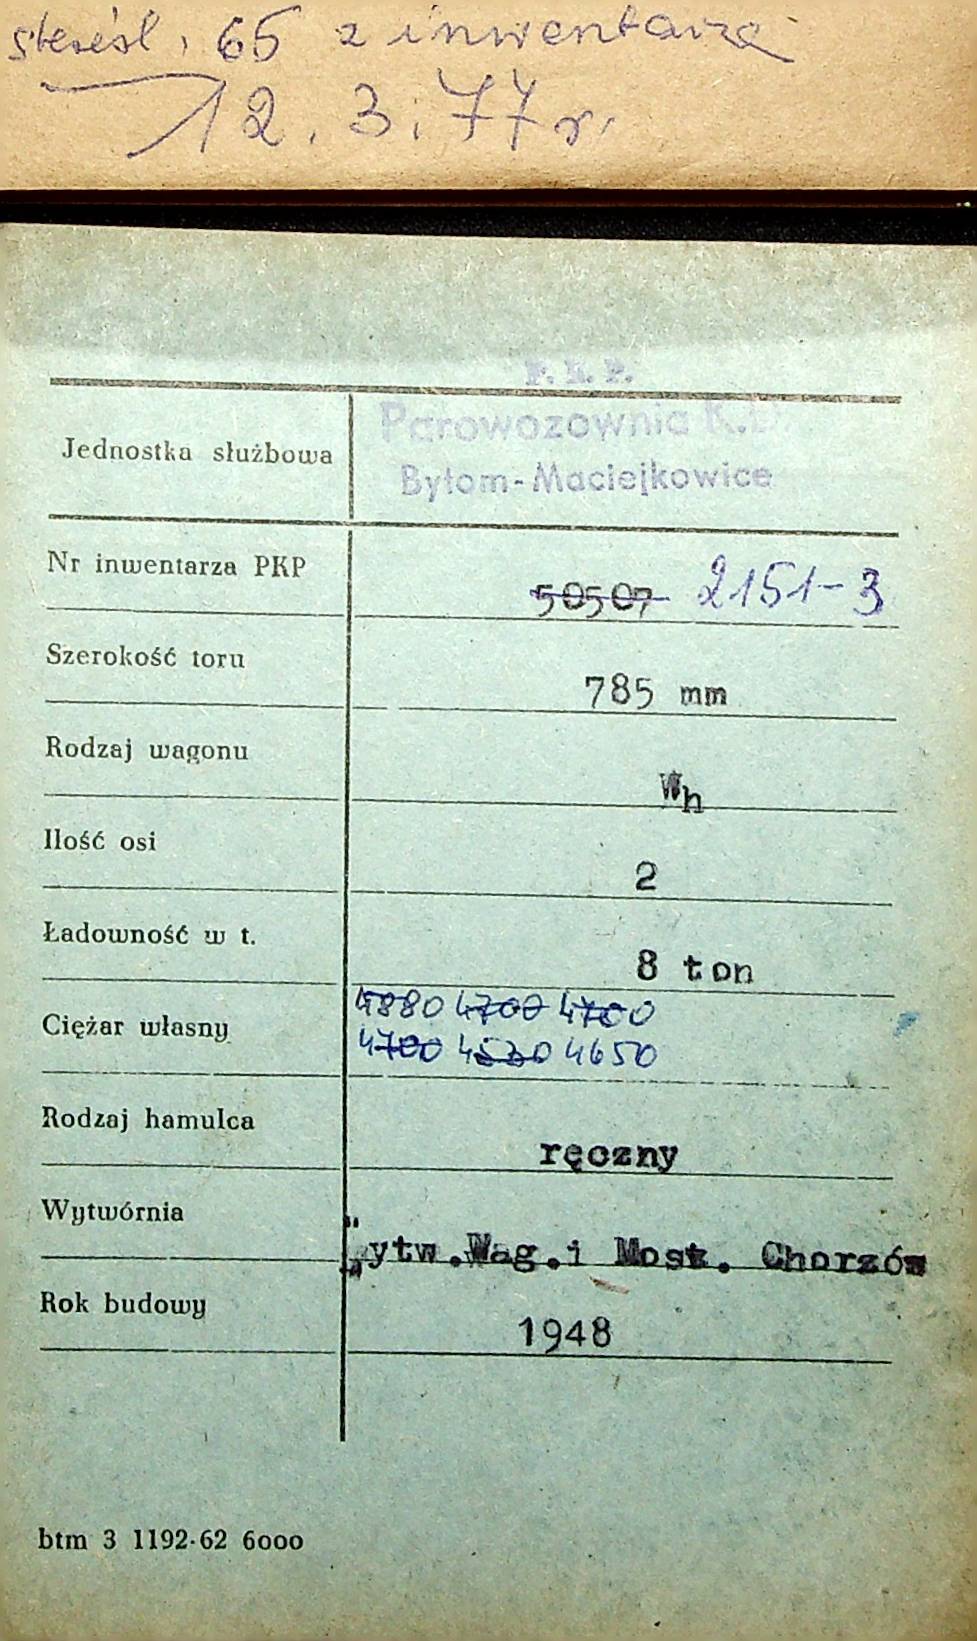 skreśl. 65 z inwentarza
12.3.77 r.
P. K. P.
Parowozownia K.D.
Jednostka służbowa
Bytom-Maciejkowice
Nr inwentarza PKP
50507 2151-3
Szerokość toru
785 mm
Rodzaj wagonu
Wh
Ilość osi
2
Ładowność w t.
8 ton
4880 4700 4700
Ciężar własny
4700 4530 4650
Rodzaj hamulca
ręczny
Wytwórnia
"Wytw.Wag.i Most. Chorzów
Rok budowy
1948
btm 3 1192-62 6000